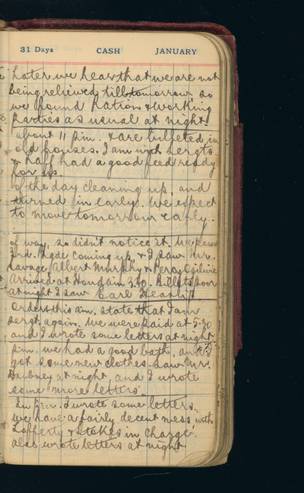 31 Days CASH JANUARY
Later we hear that we are not
being relieved till tomorrow so
we found Ration & Working
Parties as usual at night.
about 11 p.m. & are billeted in
old houses. I am with Sergts
& Naff had a good feed ready
for us.
of the day cleaning up, and
turned in early. We expect
to move tomorrow early.
of way, so didn't notice it. We passed
3rd. Bgde coming up, & I saw Mr.
Savage, Albert Murphy & Percy Ogilvie
Arrived at Houdain 3.30. Billets poor
at night I saw Earl Heaslip
Orders this a.m. state that I am
Sergt again. We were paid at 5.30
and I wrote some letters at night
p.m. we had a good bath, and I
got some new clothes. Saw Mr.
at night, and I wrote
some more letters
In p.m. I wrote some letters.
We have a fairly decent mess with
Lafferty & Stokes in Charge.
Also wrote letters at night